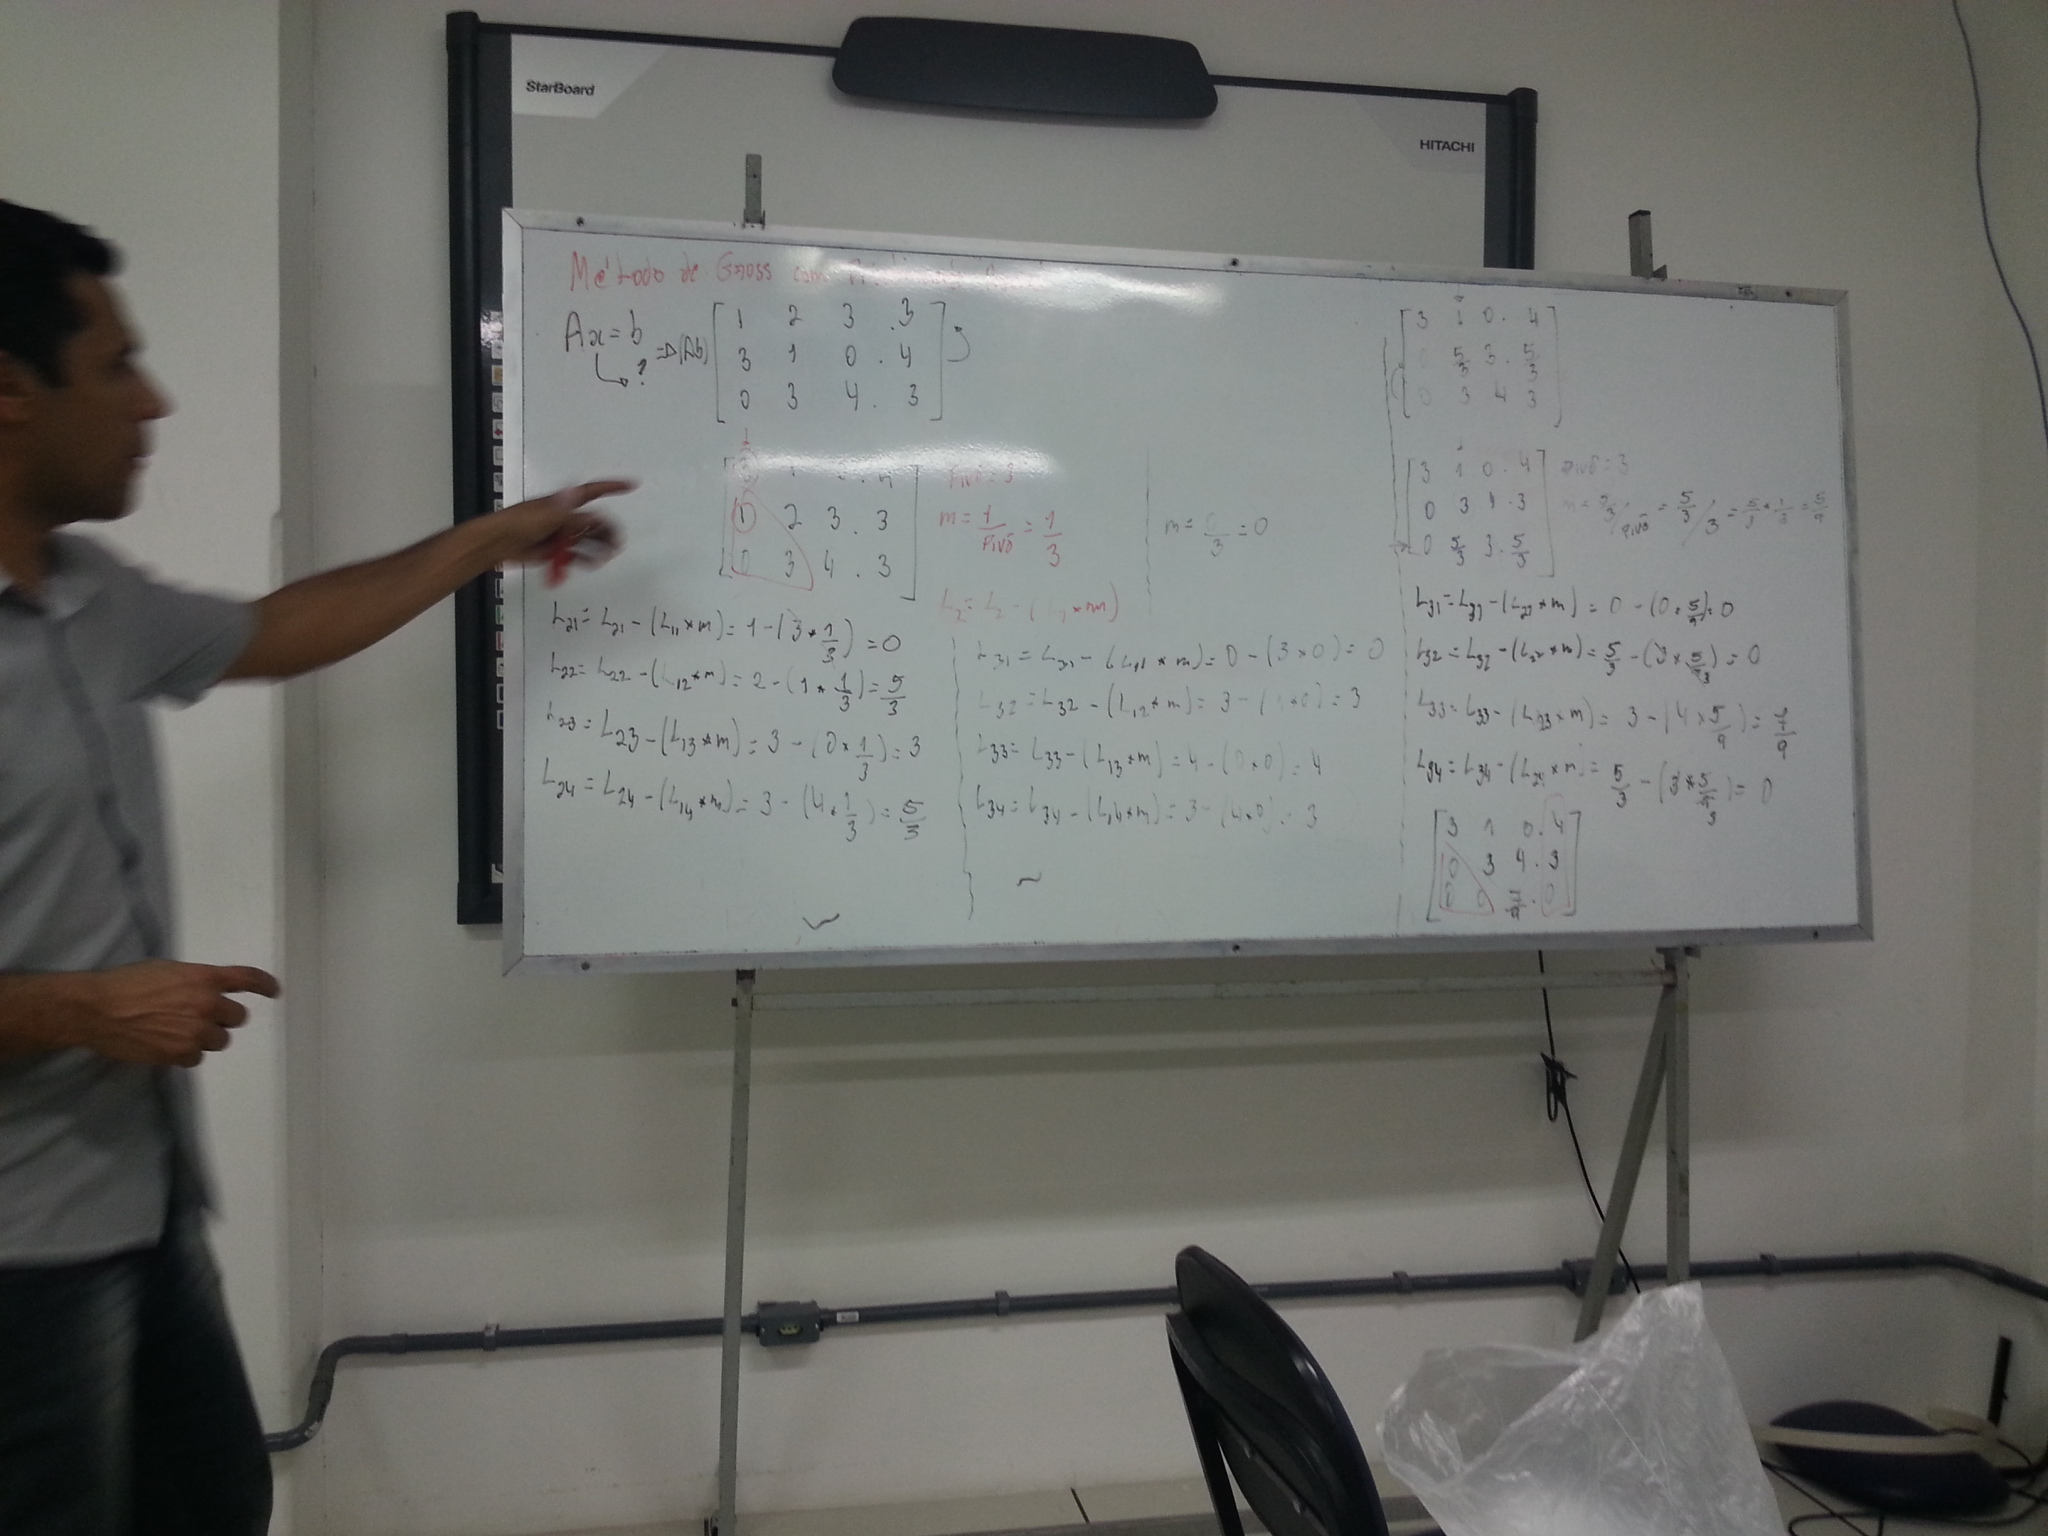 StarBoard
HITACHI
Método de Gauss com
Ax=b
?
⇒(Ab)
1 2 3 . 3
3 1 0 . 4
0 3 4 . 3
1 2 3 . 3
0 3 4 . 3
Pivô = 3
m = 1/Pivô = 1/3
m = 0/3 = 0
L2 = L2 - (L1 * m)
L21 = L21 - (L11 * m) = 1 - (3 * 1/3) = 0
L22 = L22 - (L12 * m) = 2 - (1 * 1/3) = 5/3
L23 = L23 - (L13 * m) = 3 - (0 * 1/3) = 3
L24 = L24 - (L14 * m) = 3 - (4 * 1/3) = 5/3
L31 = L31 - (L11 * m) = 0 - (3 * 0) = 0
L32 = L32 - (L12 * m) = 3 - (1 * 0) = 3
L33 = L33 - (L13 * m) = 4 - (0 * 0) = 4
L34 = L34 - (L14 * m) = 3 - (4 * 0) = 3
3 1 0 . 4
0 5/3 3 . 5/3
0 3 4 3
3 1 0 . 4
0 3 4 . 3
0 5/3 3 . 5/3
Pivô = 3
m = 5/3/Pivô = 5/3 / 3 = 5/3 * 1/3 = 5/9
L31 = L31 - (L21 * m) = 0 - (0 * 5/9) = 0
L32 = L32 - (L22 * m) = 5/3 - (3 * 5/9) = 0
L33 = L33 - (L23 * m) = 3 - (4 * 5/9) = 7/9
L34 = L34 - (L24 * m) = 5/3 - (3 * 5/9) = 0
3 1 0 . 4
0 3 4 . 3
0 0 7/9 . 0